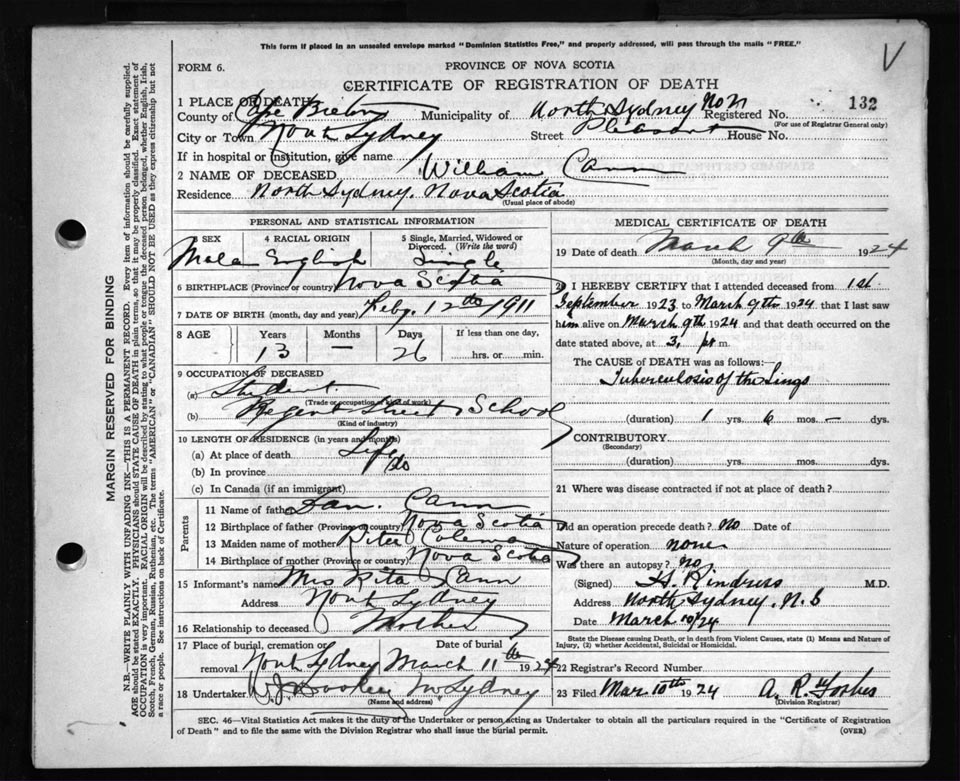 This form if placed in an unsealed envelope marked "Dominion Statistics Free," and properly addressed, will pass through the mails "FREE."
V
FORM 6.
PROVINCE OF NOVA SCOTIA
CERTIFICATE OF REGISTRATION OF DEATH
132
1 PLACE OF DEATH
County of Cape Breton Municipality of North Sydney Registered No.
(For use of Registrar General only)
City or Town North Sydney Street Pleasant House No.
If in hospital or institution, give name
2 NAME OF DECEASED William Cann
Residence North Sydney. Nova Scotia
(Usual place of abode)
PERSONAL AND STATISTICAL INFORMATION
3 SEX 4 RACIAL ORIGIN 5 Single, Married, Widowed or Divorced. (Write the word)
Male English Single
6 BIRTHPLACE (Province or country) Nova Scotia
7 DATE OF BIRTH (month, day and year) Feby. 12th 1911
8 AGE Years Months Days If less than one day,
13 — 26 hrs. or min.
9 OCCUPATION OF DECEASED
(a) Student
(Trade or occupation or kind of work)
(b) Regent Street School
(Kind of industry)
10 LENGTH OF RESIDENCE (in years and months)
(a) At place of death Life
(b) In province do
(c) In Canada (if an immigrant)
Parents
11 Name of father Dan. Cann
12 Birthplace of father (Province or country) Nova Scotia
13 Maiden name of mother Coleman
14 Birthplace of mother (Province or country) Nova Scotia
15 Informant's name Mrs Rita Cann
Address North Sydney
16 Relationship to deceased Mother
17 Place of burial, cremation or Date of burial
removal North Sydney March 11th 1924
18 Undertaker W. J. Dooley N Sydney
(Name and address)
MEDICAL CERTIFICATE OF DEATH
19 Date of death March 9th 1924
(Month, day and year)
20 I HEREBY CERTIFY that I attended deceased from 1st
September 1923 to March 9th 1924. that I last saw
him alive on March 9th 1924 and that death occurred on
date stated above, at 3, p. m.
The CAUSE OF DEATH was as follows:—
Tuberculosis of the Lungs
(duration) 1 yrs. 6 mos. – dys.
CONTRIBUTORY
(Secondary)
(duration) yrs. mos. dys.
21 Where was disease contracted if not at place of death?
Did an operation precede death? No Date of
Nature of operation none
Was there an autopsy? No
(Signed) M.D.
Address North Sydney. N. S
Date March 10/24
State the Disease causing Death, or in death from Violent Causes, state (1) Means and Nature of
Injury, (2) whether Accidental, Suicidal or Homicidal.
22 Registrar's Record Number
23 Filed Mar 10th 1924 A. R. Forbes
(Division Registrar)
SEC. 46—Vital Statistics Act makes it the duty of the Undertaker or person acting as Undertaker to obtain all the particulars required in the "Certificate of Registration
of Death" and to file the same with the Division Registrar who shall issue the burial permit.
(OVER)
MARGIN RESERVED FOR BINDING
N.B.—WRITE PLAINLY WITH UNFADING INK—THIS IS A PERMANENT RECORD. Every item of information should be carefully supplied.
AGE should be stated EXACTLY. PHYSICIANS should STATE CAUSE OF DEATH in plain terms, so that it may be properly classified. Exact statement of
OCCUPATION is very important. RACIAL ORIGIN will be described by stating to what people or tongue the deceased person belonged, whether English, Irish,
Scotch, French, German, Russian, Ruthenian, etc. The terms "AMERICAN" or "CANADIAN" SHOULD NOT BE USED as they express citizenship but not
a race or people. See instructions on back of Certificate.